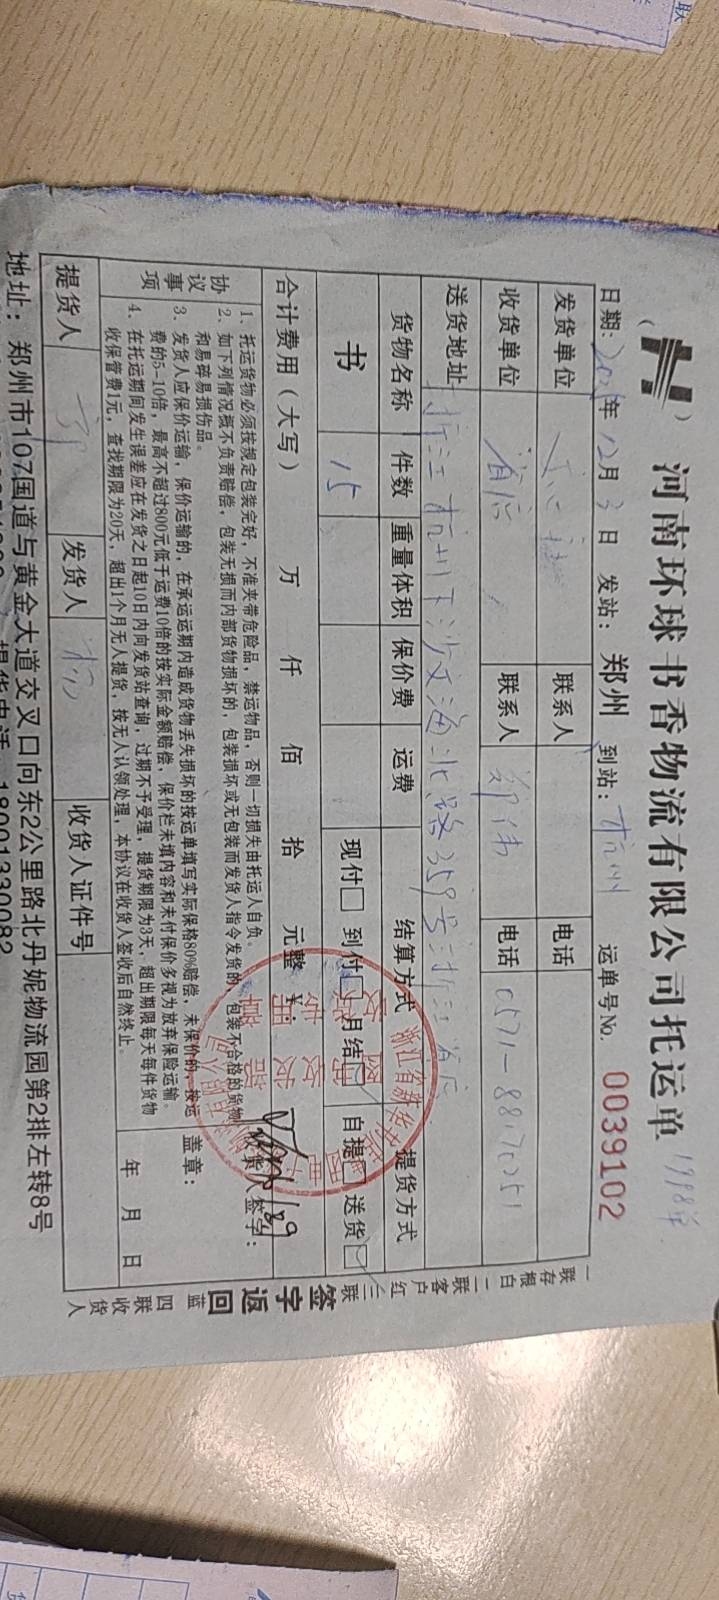 河南环球书香物流有限公司托运单
日期: 年12月3日 发站: 郑州 到站: 杭州 运单号No. 0039102
发货单位 联系人 电话
收货单位 省店 联系人 郑伟 电话
送货地址 浙江杭州下沙文海北路359号浙江省店
货物名称 件数 重量体积 保价费 运费 结算方式 提货方式
书 15 现付□ 到付□ 月结□ 自提□ 送货□
合计费用(大写) 万 仟 佰 拾 元整 ¥:
协议事项
1、托运货物必须按规定包装完好,不准夹带危险品,禁运物品,否则一切损失由托运人自负。
2、如下列情况概不负责赔偿,包装无损而内部货物损坏的,包装损坏或无包装而发货人指令发货的,包装不合格的货物
和易碎易损伤品。
3、发货人应保价运输,保价运输的,在承运运期内造成货物丢失损坏的按运单填写实际保格80%赔偿,未保价的,按运
费的5-10倍,最高不超过800元低于运费10倍的按实际金额赔偿,保价栏未填内容和未付保价多视为放弃保险运输。
4、在托运期间发生误差应在发货之日起10日内向发货站查询,过期不予受理,提货期限为3天,超出期限每天每件货物
收保管费1元,查找期限为20天,超出1个月无人提货,按无人认领处理,本协议在收货人签收后自然终止。
收货人签字:
盖章:
年 月 日
提货人 发货人 收货人证件号
地址: 郑州市107国道与黄金大道交叉口向东2公里路北丹妮物流园第2排左转8号
一联存根白 二联客户红 三联签字返回蓝 四联收货人